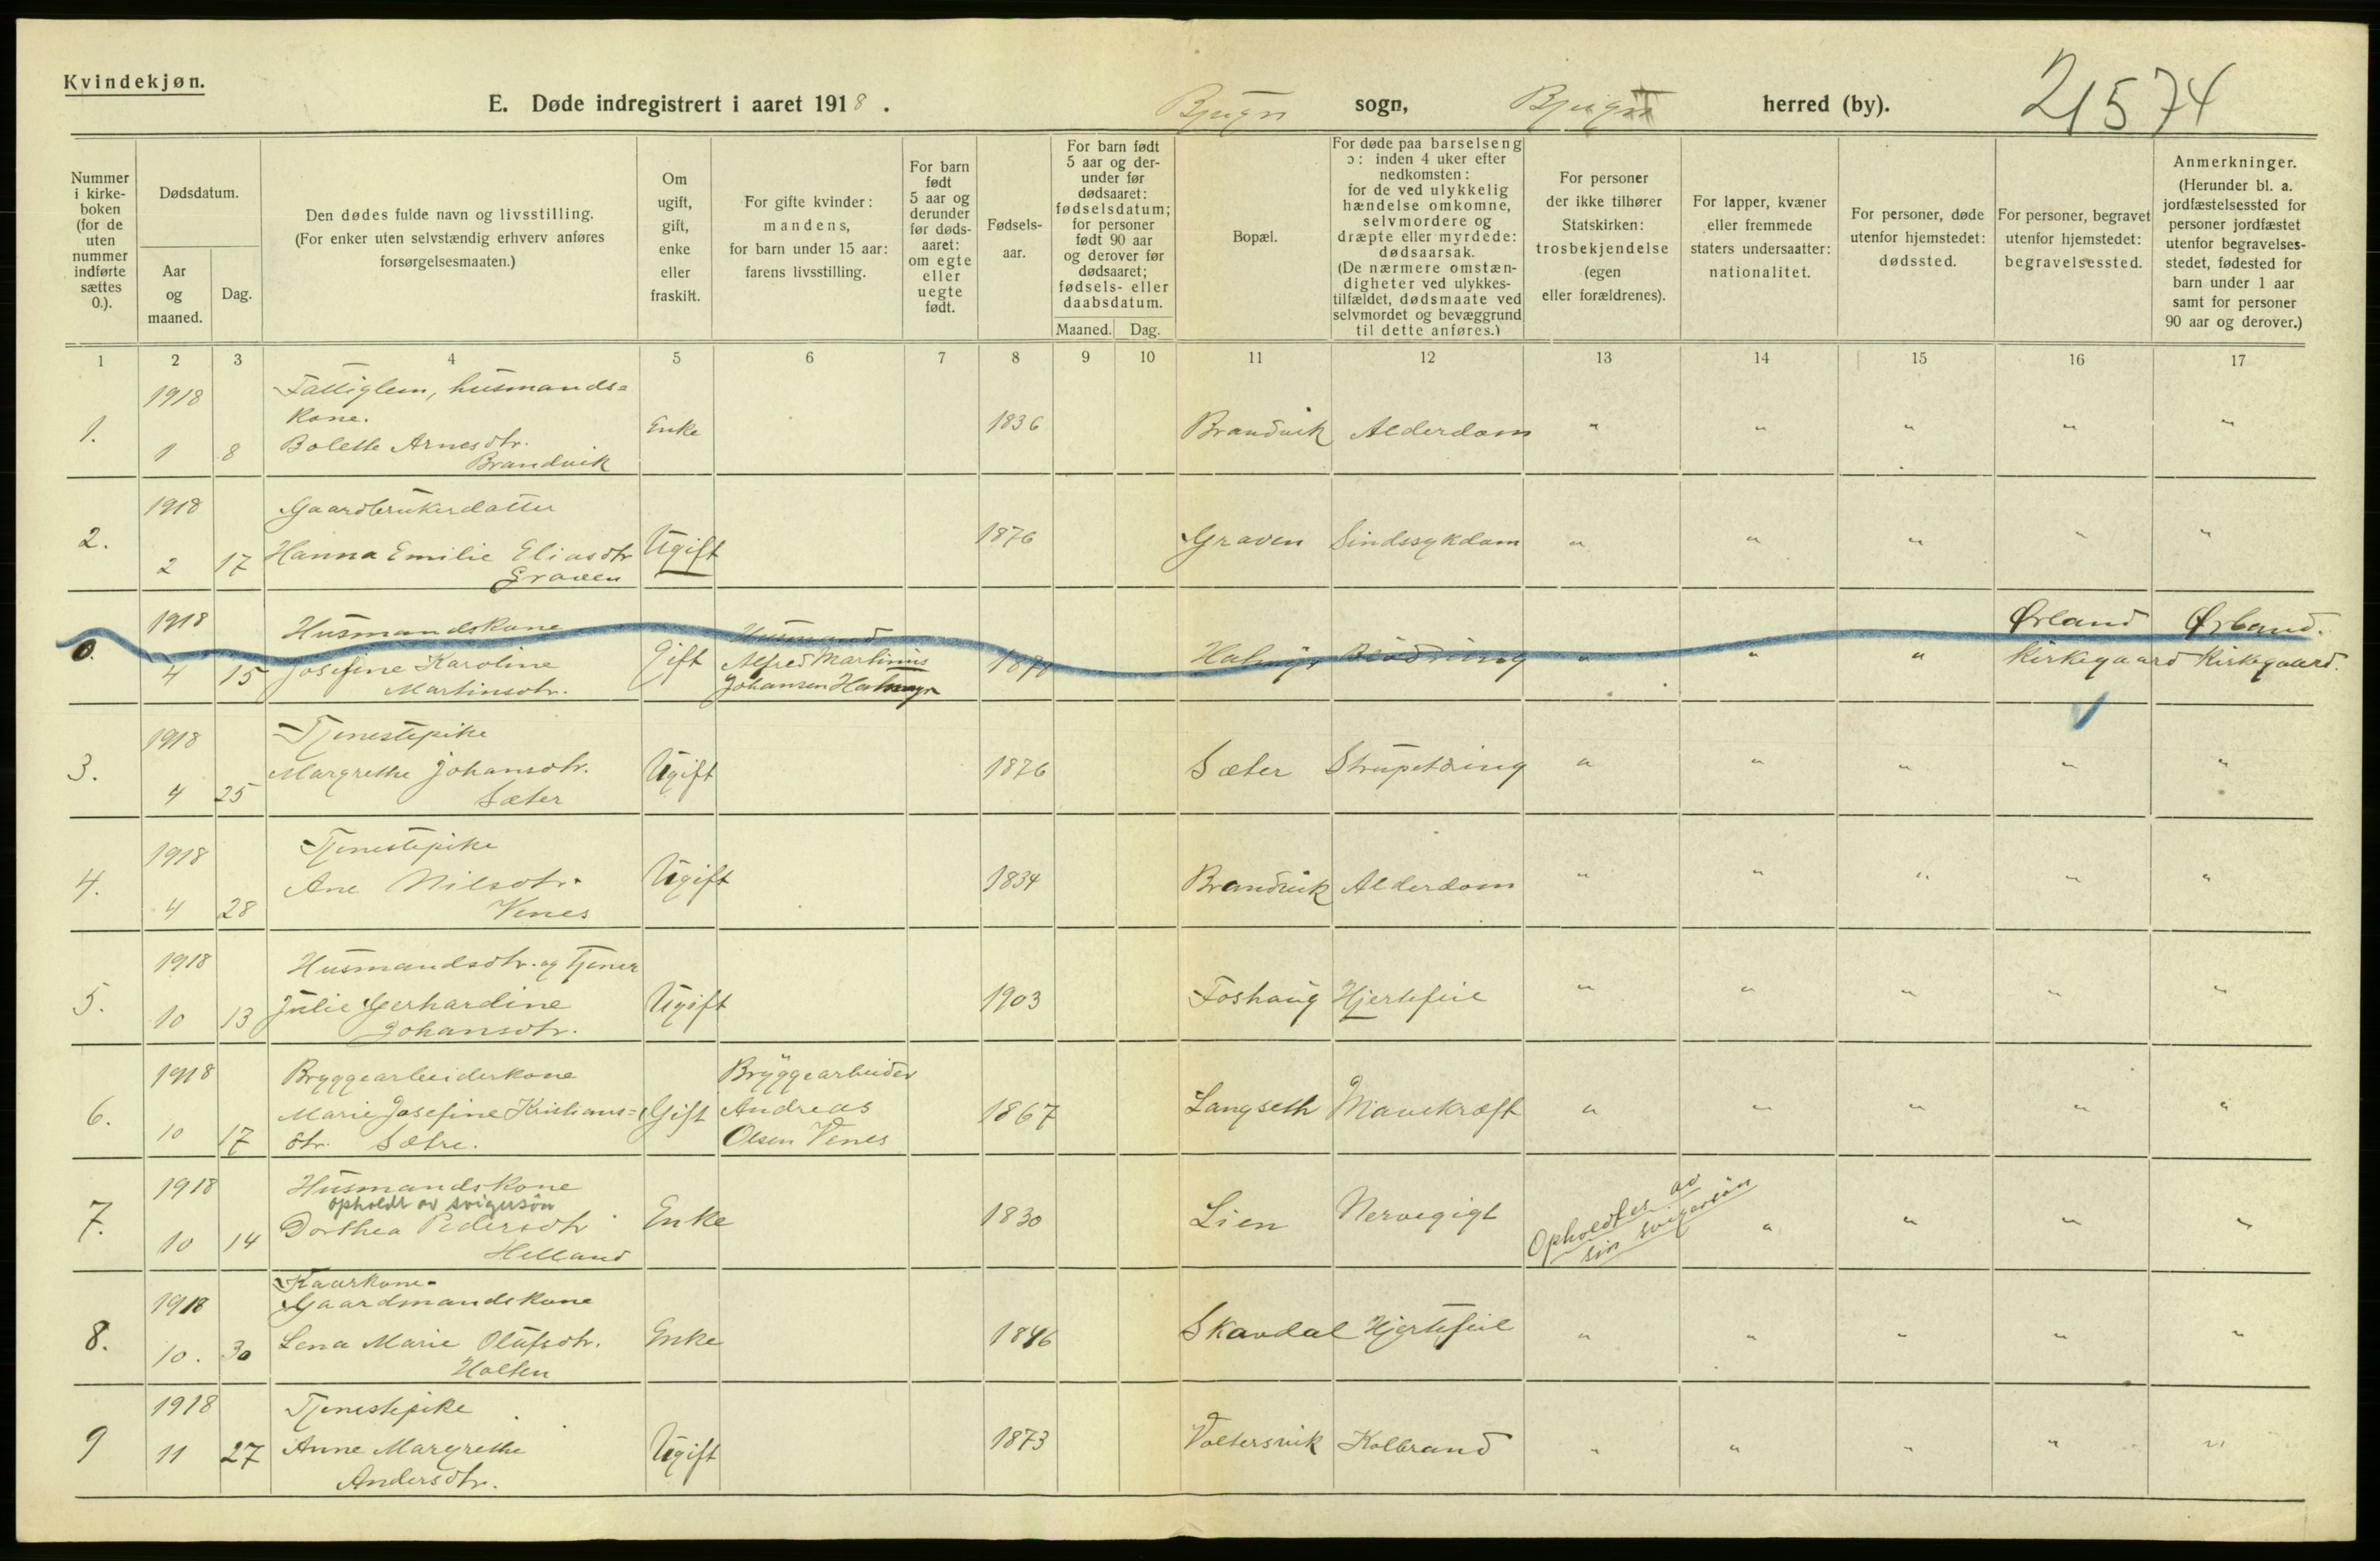 Kvindekjøn.
E. Døde indregistrert i aaret 1918.
Bjugn sogn, Bjugn herred (by).
21574
Nummer i kirkeboken (for de uten nummer indførte sættes 0.).
Dødsdatum.
Aar og maaned.
Dag.
Den dødes fulde navn og livsstilling.
(For enker uten selvstændig erhverv anføres forsørgelsesmaaten.)
Om ugift, gift, enke eller fraskilt.
For gifte kvinder: mandens, for barn under 15 aar: farens livsstilling.
For barn født 5 aar og derunder før dødsaaret: om egte eller uegte født.
Fødselsaar.
For barn født 5 aar og derunder før dødsaaret: fødselsdatum; for personer født 90 aar og derover før dødsaaret; fødsels- eller daabsdatum.
Maaned. Dag.
Bopæl.
For døde paa barselseng ɔ: inden 4 uker efter nedkomsten: for de ved ulykkelig hændelse omkomne, selvmordere og dræpte eller myrdede: dødsaarsak.
(De nærmere omstændigheter ved ulykkestilfældet, dødsmaate ved selvmordet og bevæggrund til dette anføres.)
For personer der ikke tilhører Statskirken: trosbekjendelse (egen eller forældrenes).
For lapper, kvæner eller fremmede staters undersaatter: nationalitet.
For personer, døde utenfor hjemstedet: dødssted.
For personer, begravet utenfor hjemstedet: begravelsessted.
Anmerkninger.
(Herunder bl. a. jordfæstelsessted for personer jordfæstet utenfor begravelsesstedet, fødested for barn under 1 aar samt for personer 90 aar og derover.)
1 2 3 4 5 6 7 8 9 10 11 12 13 14 15 16 17
1. 1918 1 8
Fattiglem, husmands=
kone.
Bolette Arnesdtr.
Brandvik
Enke 1836 Brandvik Alderdom " " " " "
2. 1918 2 17
Gaardbrukerdatter
Hanna Emilie Eliasdtr
Graven
Ugift 1876 Graven Sindssykdom " " " " "
0. 1918 4 15
Husmandskone
Josefine Karoline
Martinsdtr.
Gift
Husmand
Alfred Martinius
Johansen Halmyr
Halmyr Blødning " " "
Ørland
Kirkegaard
Ørland.
Kirkegaard.
3. 1918 4 25
Tjenestepike
Margrethe Johansdtr.
Sæter
Ugift 1876 Sæter Strupetæring " " " " "
4. 1918 4 28
Tjenestepike
Ane Nilsdtr.
Venes
Ugift 1834 Brandvik Alderdom " " " " "
5. 1918 10 13
Husmandsdtr. og Tjener
Julie Gerhardine
Johansdtr.
Ugift 1903 Foshaug Hjertefeil " " " " "
6. 1918 10 17
Bryggearbeiderkone
Marie Josefine Kristians=
dtr. Sætre.
Gift
Bryggearbeider
Andreas
Olsen Venes
1867 Langseth Mavekræft " " " " "
7. 1918 10 14
Husmandskone
opholdt av svigersøn
Dorthea Pedersdtr
Helland
Enke 1830 Lien Nervegigt
Opholdtes av
sin svigersøn
" " " "
8. 1918 10. 30
Kaarkone-
Gaardmandskone
Lena Marie Olufsdtr.
Holten
Enke 1846 Skavdal Hjertefeil " " " " "
9 1918 11 27
Tjenestepike
Anne Margrethe
Andersdtr.
Ugift 1873 Valtersvik Kolbrand " " " " "